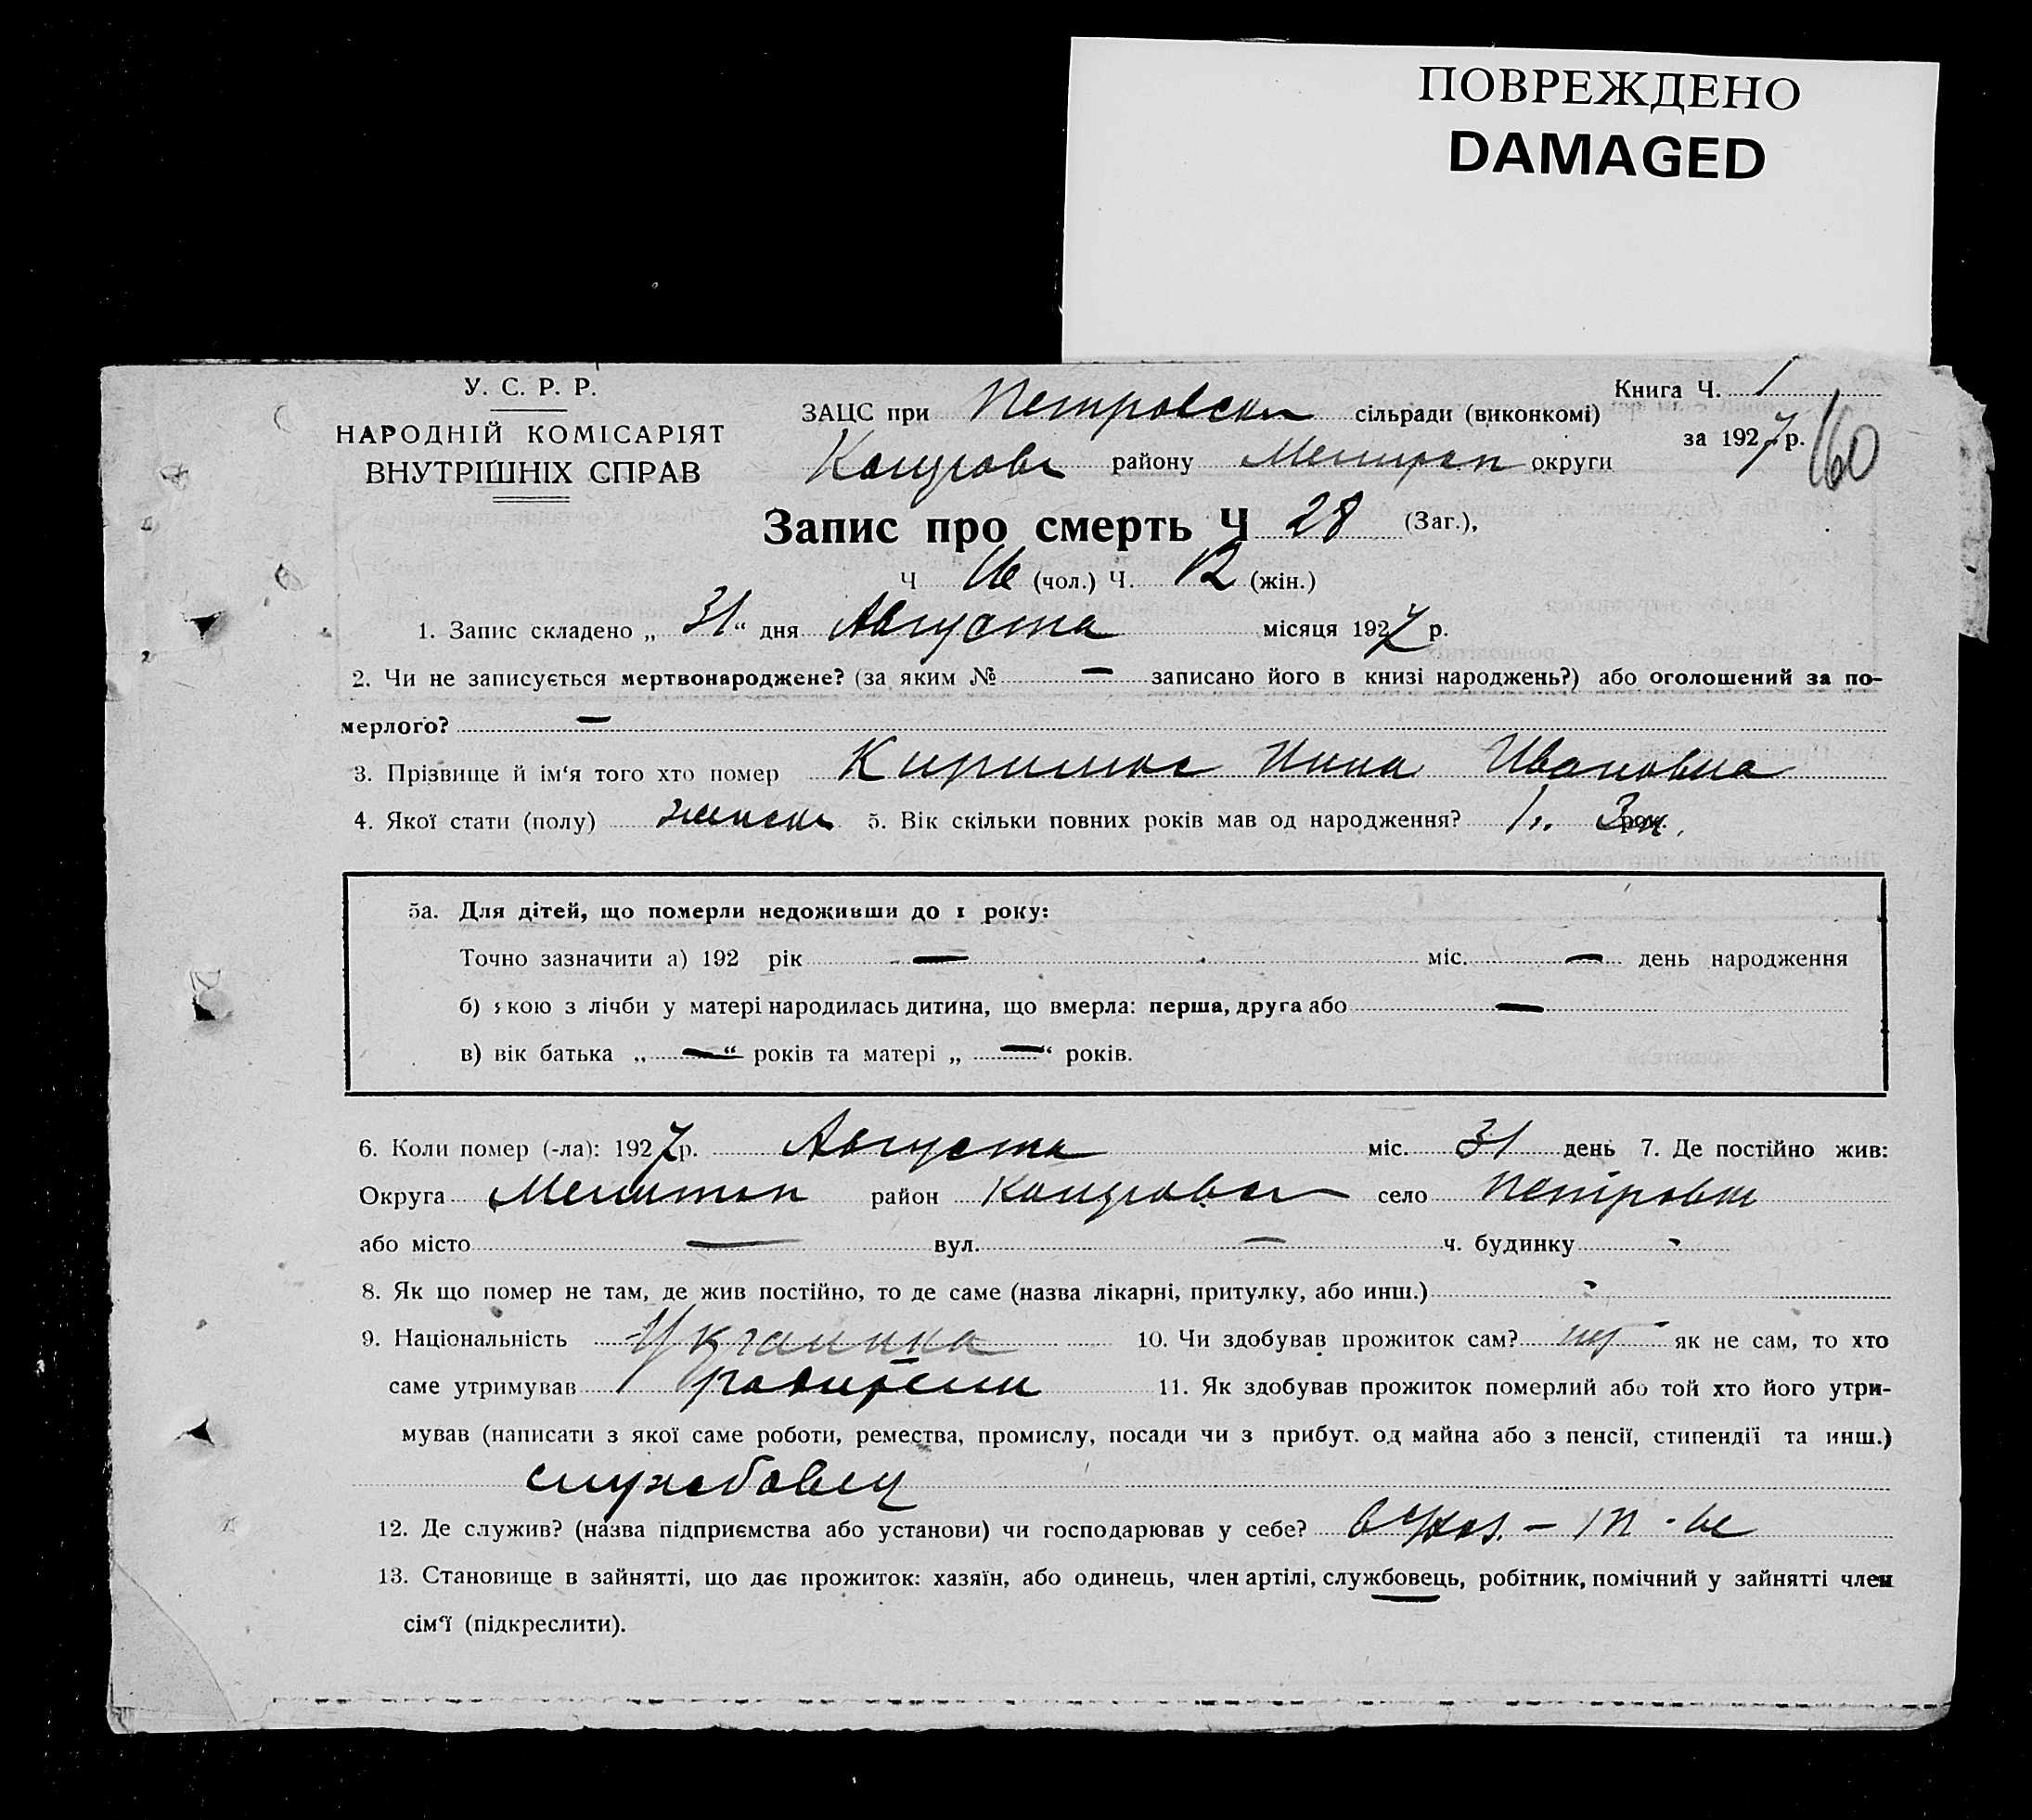 ПОВРЕЖДЕНО
DAMAGED
У. С. Р. Р.
НАРОДНІЙ КОМІСАРІЯТ
ВНУТРІШНІХ СПРАВ
Книга Ч. 1
за 1927 р.
160
ЗАЦС при Петровськ сільради (виконкомі)
району округи
Запис про смерть Ч 28 (Заг.),
Ч 16 (чол.) Ч. 12 (жін.)
1. Запис складено „ 31 “ дня Августа місяця 1927 р.
2. Чи не записується мертвонароджене? (за яким № — записано його в книзі народжень?) або оголошений за по-
мерлого? —
3. Прізвище й ім'я того хто помер Нина Ивановна
4. Якої стати (полу) женск 5. Вік скільки повних років мав од народження? 1 г. 3 м.
5а. Для дітей, що померли недоживши до 1 року:
Точно зазначити а) 192 рік — міс. — день народження
б) якою з лічби у матері народилась дитина, що вмерла: перша, друга або —
в) вік батька „ — “ років та матері „ — “ років.
6. Коли помер (-ла): 1927 р. Августа міс. 31 день 7. Де постійно жив:
Округа Мелитоп район село Петровк
або місто — вул. — ч. будинку -
8. Як що помер не там, де жив постійно, то де саме (назва лікарні, притулку, або инш.) -
9. Національність Украинка 10. Чи здобував прожиток сам? нет як не сам, то хто
саме утримував родители 11. Як здобував прожиток померлий або той хто його утри-
мував (написати з якої саме роботи, ремества, промислу, посади чи з прибут. од майна або з пенсії, стипендії та инш.)
службовец
12. Де служив? (назва підприємства або установи) чи господарював у себе?
13. Становище в зайнятті, що дає прожиток: хазяїн, або одинець, член артілі, службовець, робітник, помічний у зайнятті член
сім'ї (підкреслити).